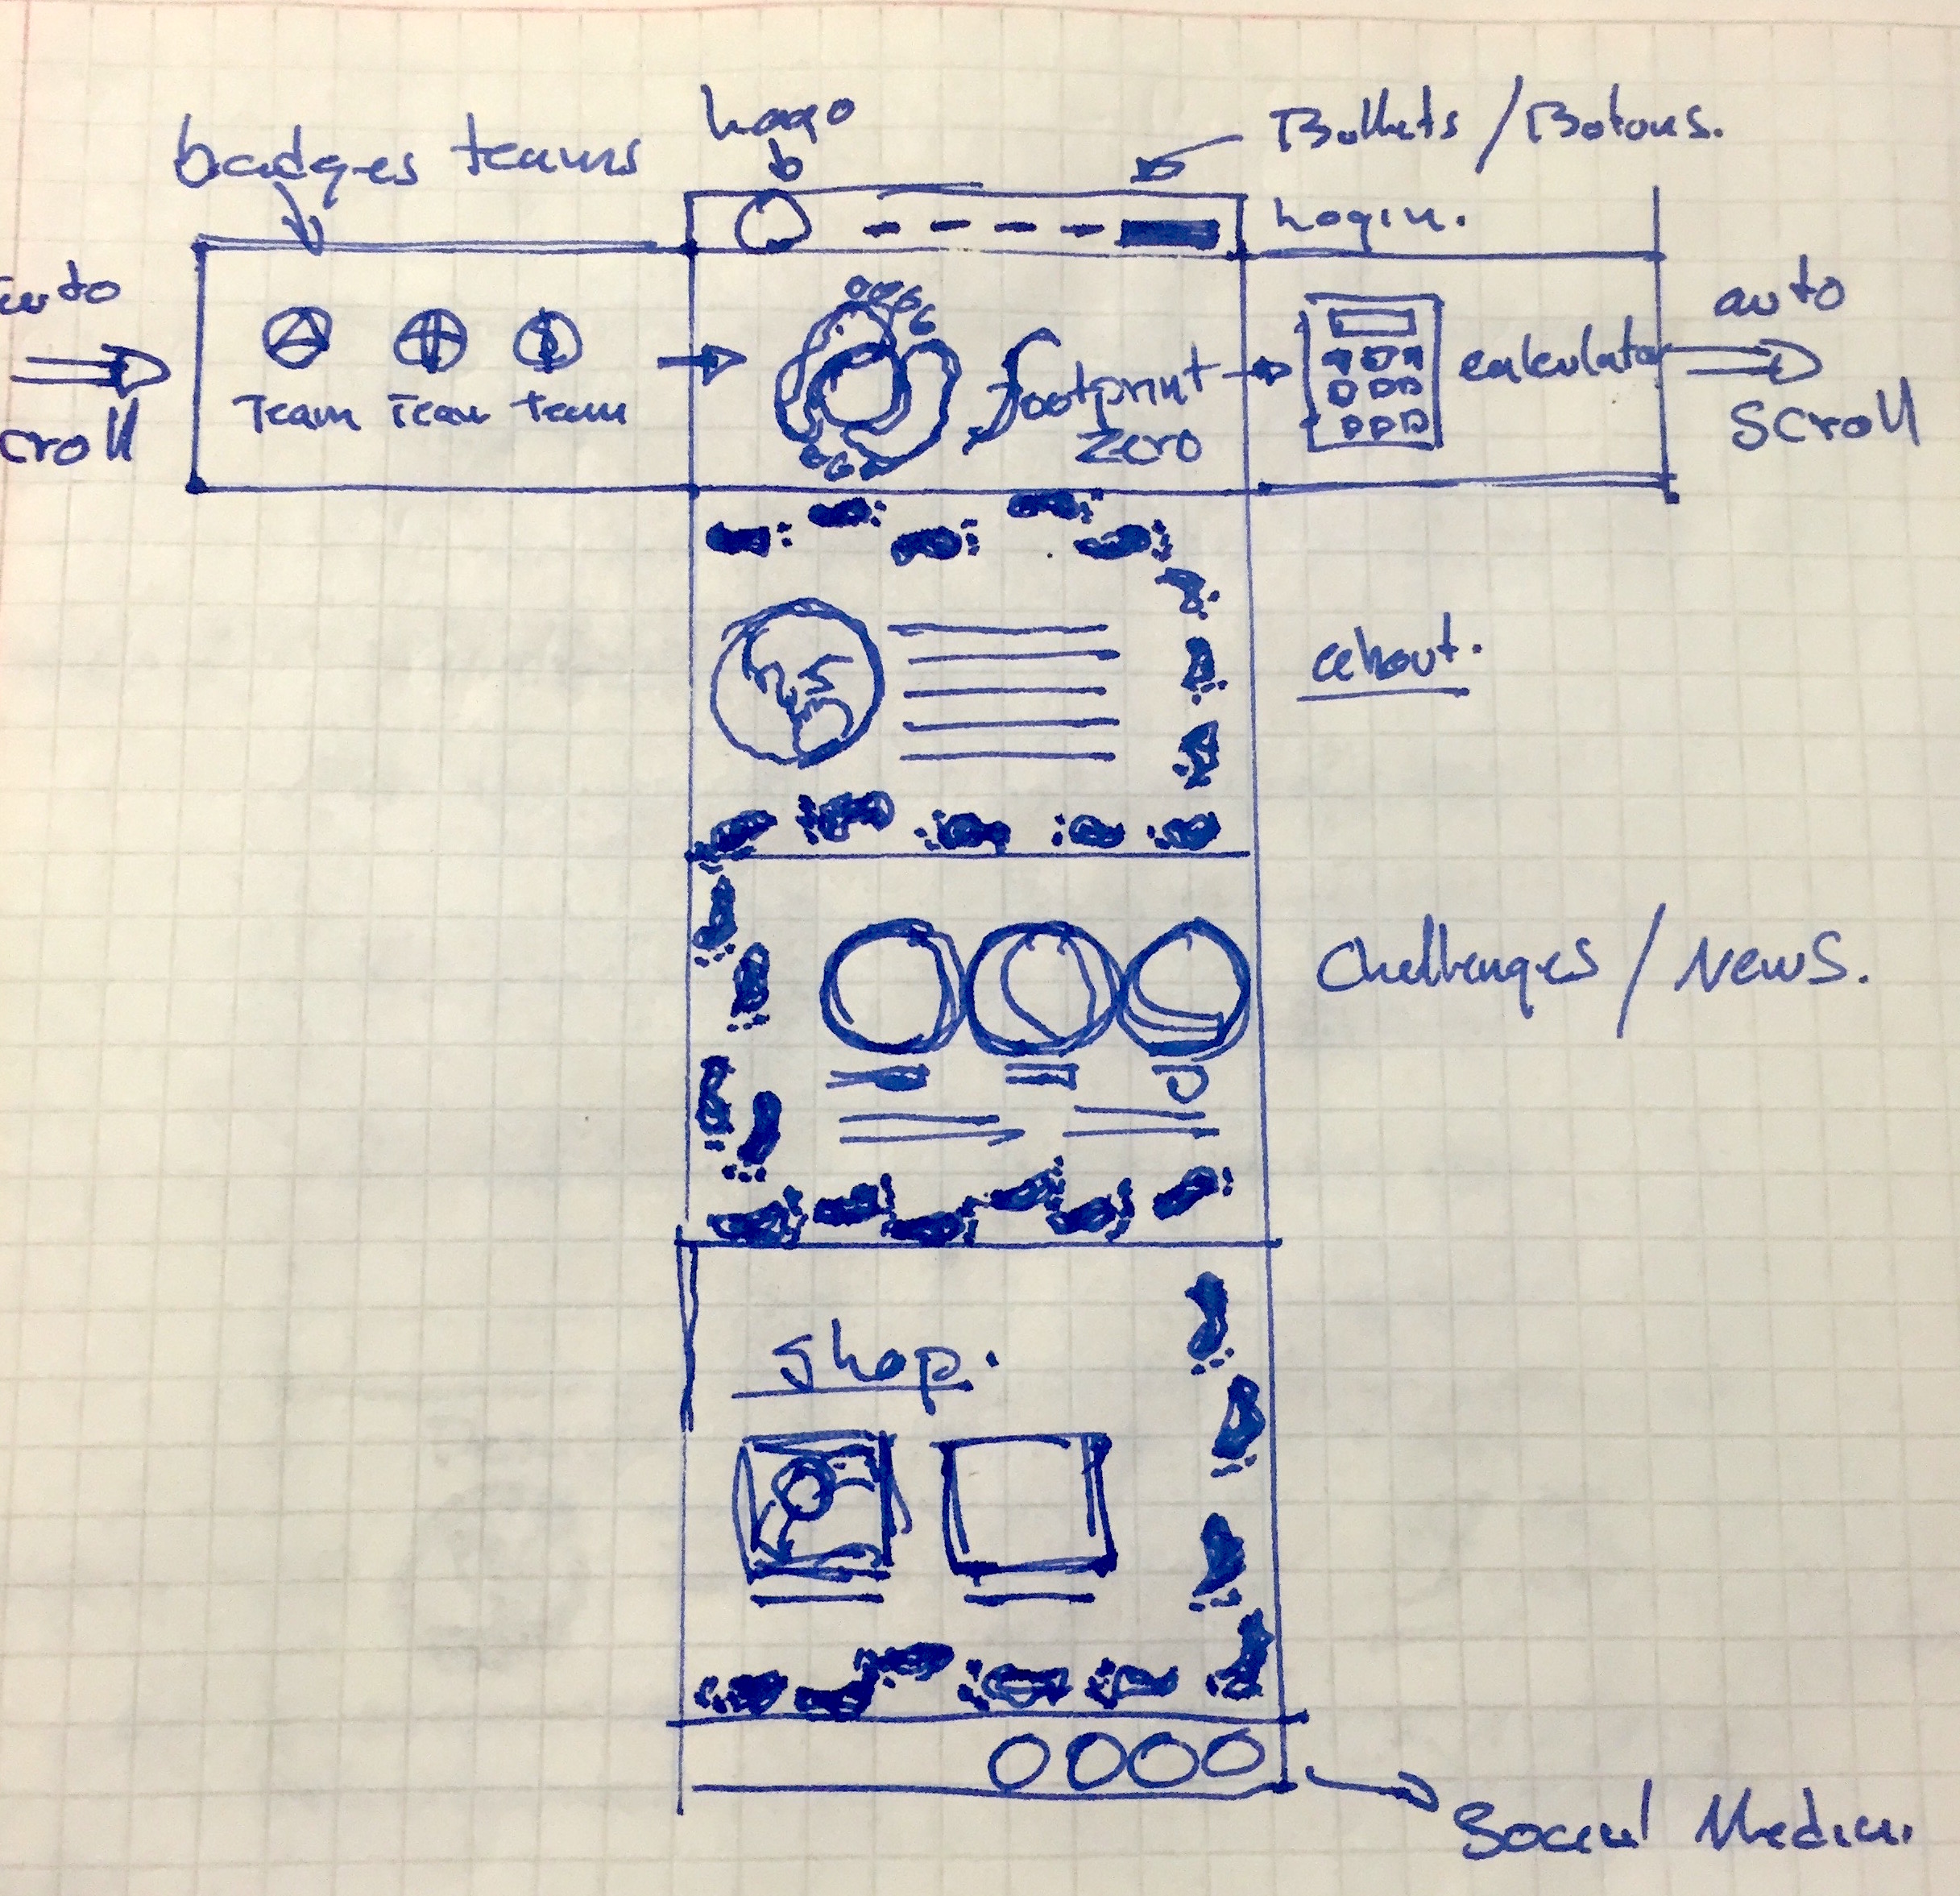 Logo
Bullets / Botons.
badges teams
Login.
auto
scroll
Team Team Team
footprint
zero
calculator
auto
scroll
about.
Challenges / News.
Shop.
Social Media.